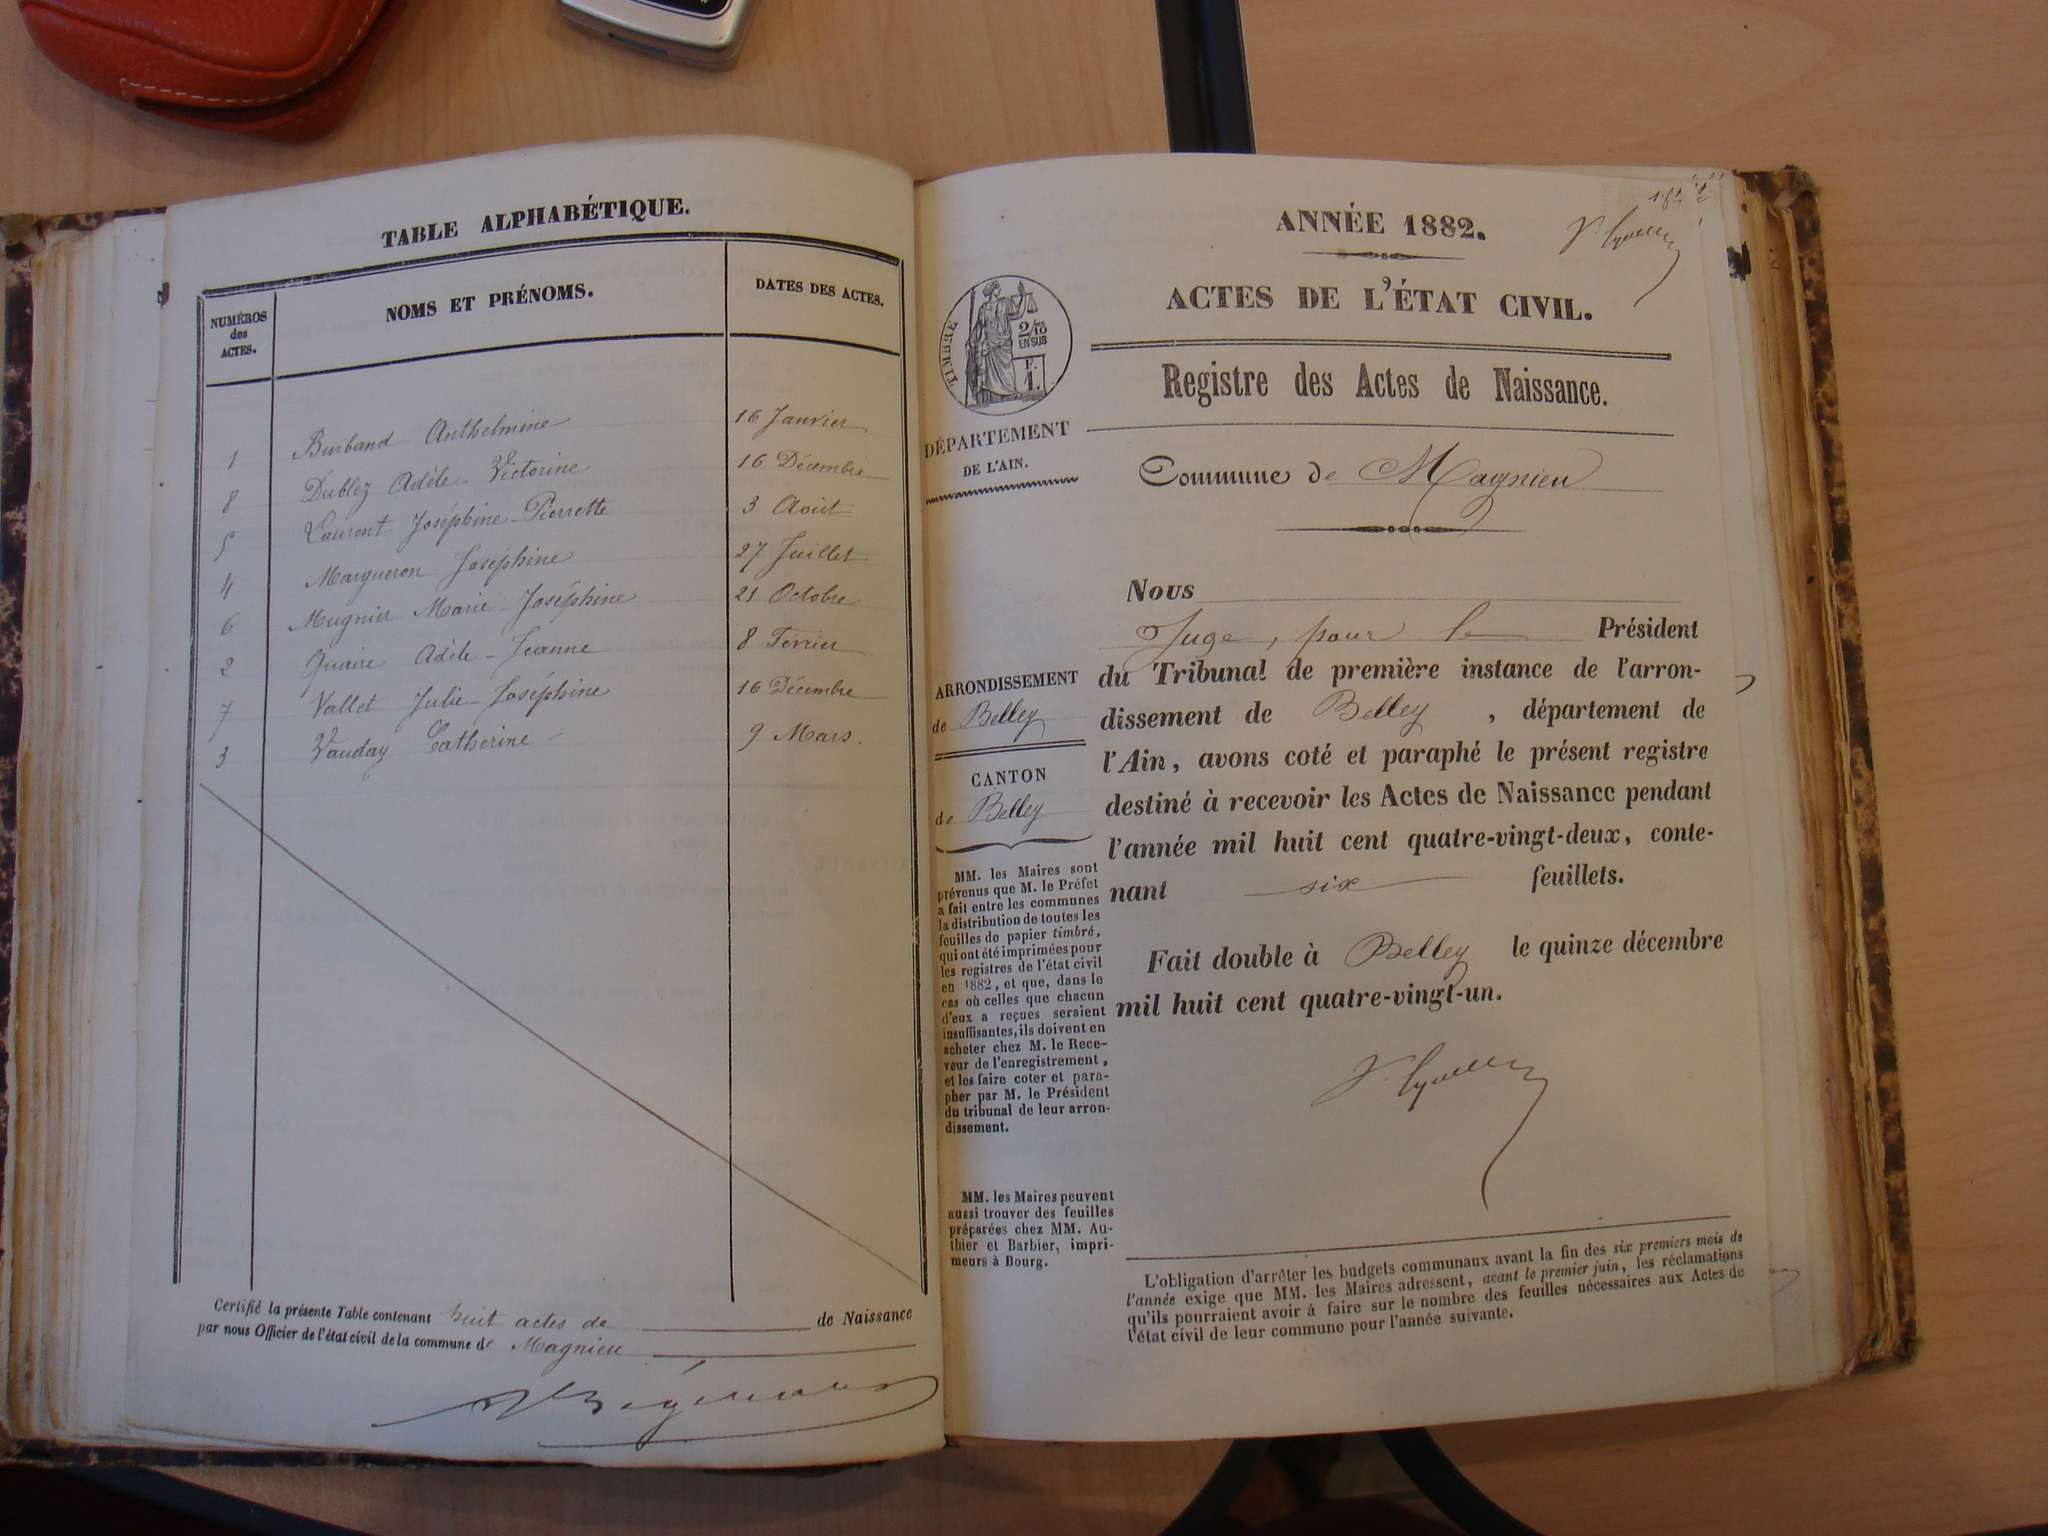 TABLE ALPHABÉTIQUE.
NUMÉROS des ACTES. NOMS ET PRÉNOMS. DATES DES ACTES.
1 Burband Anthelmine 16 Janvier
8 Dublez Adèle-Victorine 16 Décembre
5 Laurent Joséphine-Pierrette 3 Août
4 Margueron Joséphine 27 Juillet
6 Mugnier Marie-Joséphine 21 Octobre
2 Quaire Adèle-Jeanne 8 Février
7 Vallet Julie-Joséphine 16 Décembre
3 Vauday Catherine 9 Mars.
Certifié la présente Table contenant huit actes de de Naissance
par nous Officier de l'état civil de la commune de Magnieu
ANNÉE 1882.
ACTES DE L'ÉTAT CIVIL.
Registre des Actes de Naissance.
TIMBRE
2/10
EN SUS
F.
1.
DÉPARTEMENT
DE L'AIN.
Commune de Magnieu
Nous
Juge, pour le Président
du Tribunal de première instance de l'arron-
dissement de Belley, département de
l'Ain, avons coté et paraphé le présent registre
destiné à recevoir les Actes de Naissance pendant
l'année mil huit cent quatre-vingt-deux, conte-
nant six feuillets.
Fait double à Belley le quinze décembre
mil huit cent quatre-vingt-un.
ARRONDISSEMENT
de Belley
CANTON
de Belley
MM. les Maires sont
prévenus que M. le Préfet
a fait entre les communes
la distribution de toutes les
feuilles de papier timbré,
qui ont été imprimées pour
les registres de l'état civil
en 1882, et que, dans le
cas où celles que chacun
d'eux a reçues seraient
insuffisantes, ils doivent en
acheter chez M. le Rece-
veur de l'enregistrement,
et les faire coter et para-
pher par M. le Président
du tribunal de leur arron-
dissement.
MM. les Maires peuvent
aussi trouver des feuilles
préparées chez MM. Au-
thier et Barbier, impri-
meurs à Bourg.
L'obligation d'arrêter les budgets communaux avant la fin des six premiers mois de
l'année exige que MM. les Maires adressent, avant le premier juin, les réclamations
qu'ils pourraient avoir à faire sur le nombre des feuilles nécessaires aux Actes de
l'état civil de leur commune pour l'année suivante.